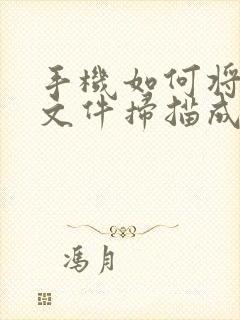 手機如何將
文件掃描成
馮月